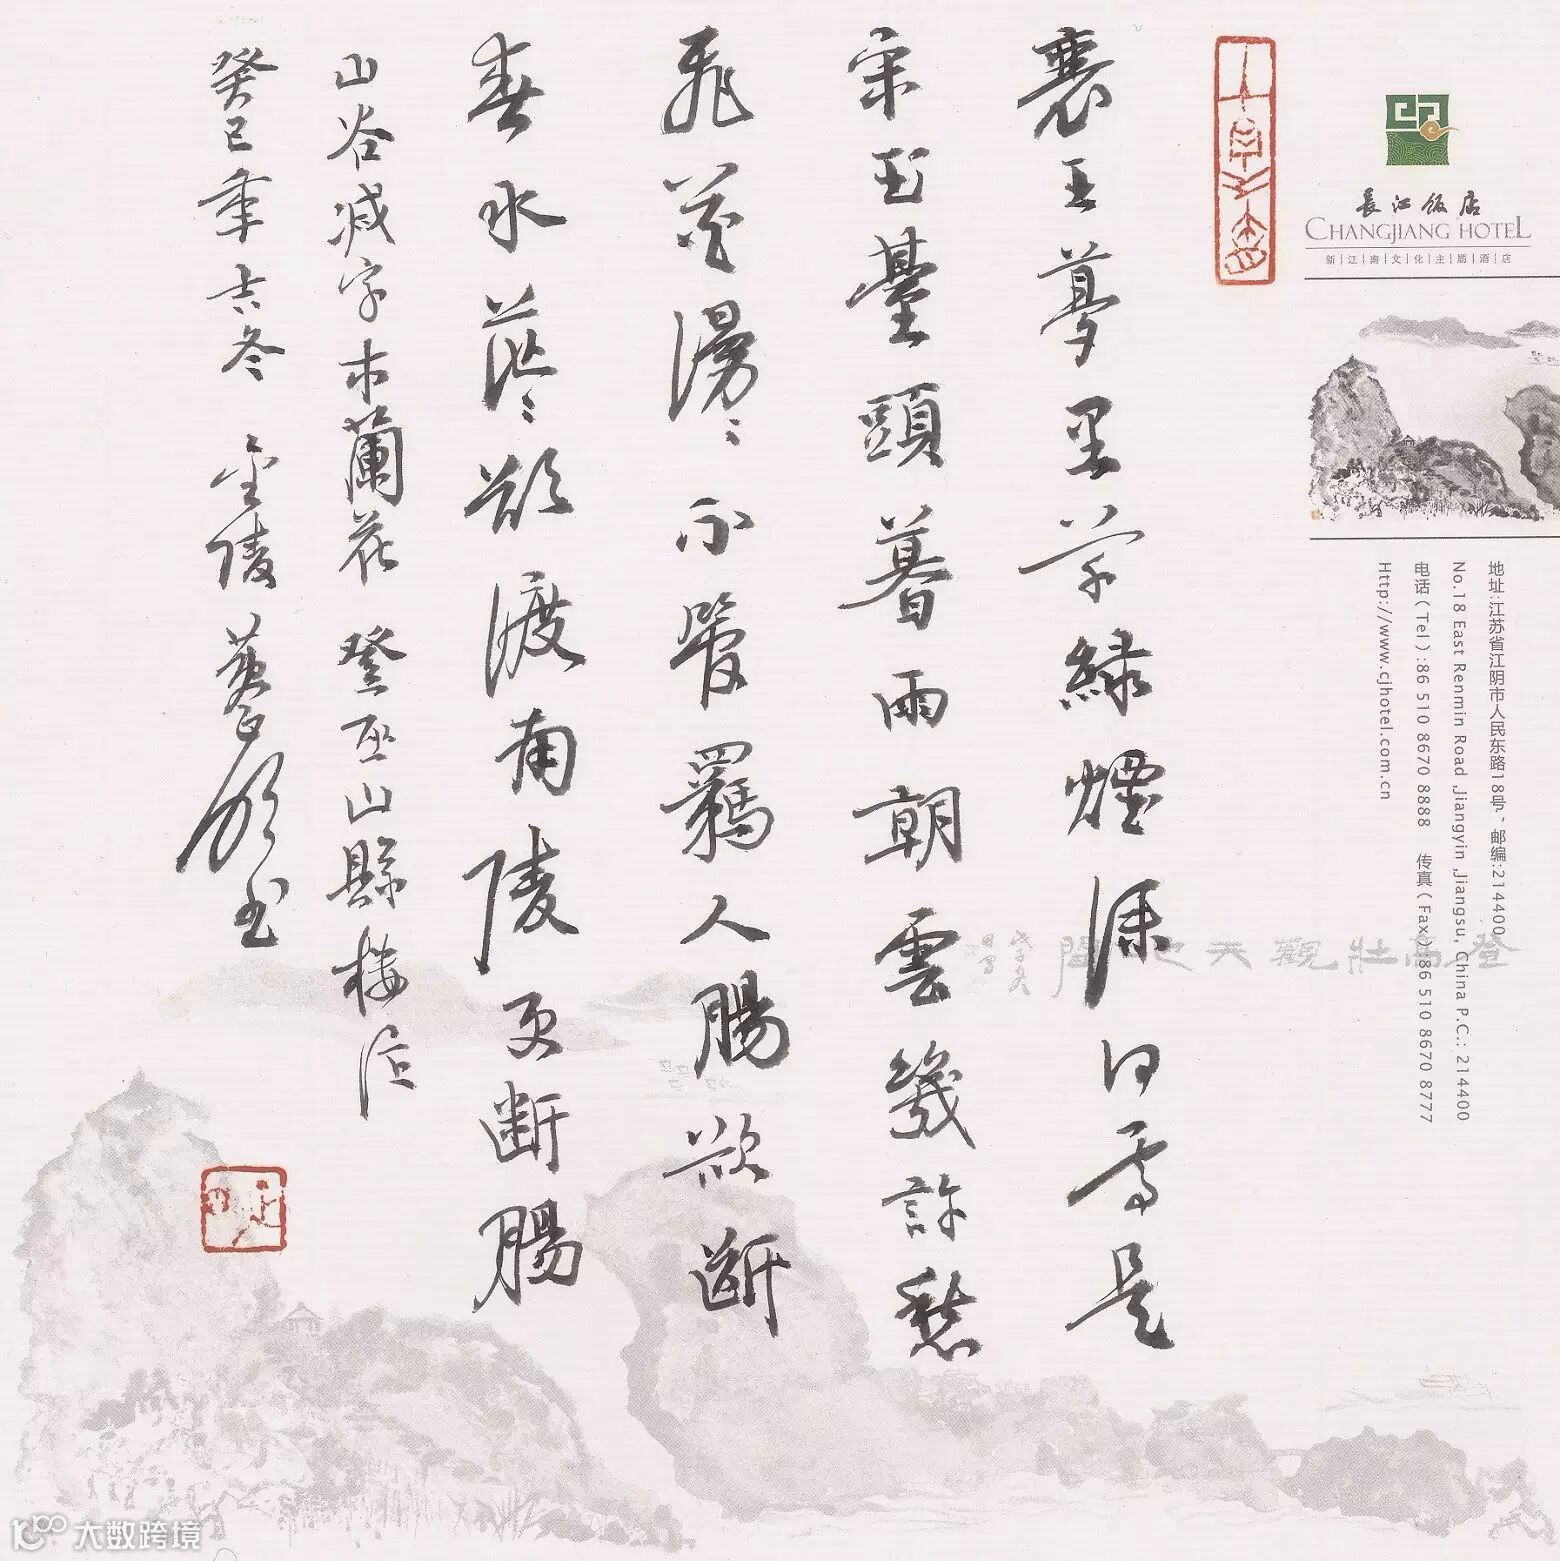 長江飯店
CHANGJIANG HOTEL
新江南文化主题酒店
地址:江苏省江阴市人民东路18号、邮编:214400
No.18 East Renmin Road ,Jiangyin ,Jiangsu, China P.C.: 214400
电话(Tel):86 510 8670 8888 传真(Fax):86 510 8670 8777
Http://www.cjhotel.com.cn
登高壯觀天地間
襄王夢里草綠煙深何處是
宋玉臺頭暮雨朝雲幾許愁
飛花漫〻不管羈人腸欲斷
春水茫〻欲渡南陵更斷腸
山谷減字木蘭花 登巫山縣樓作
癸巳年吉冬 金陵 書
大数跨境